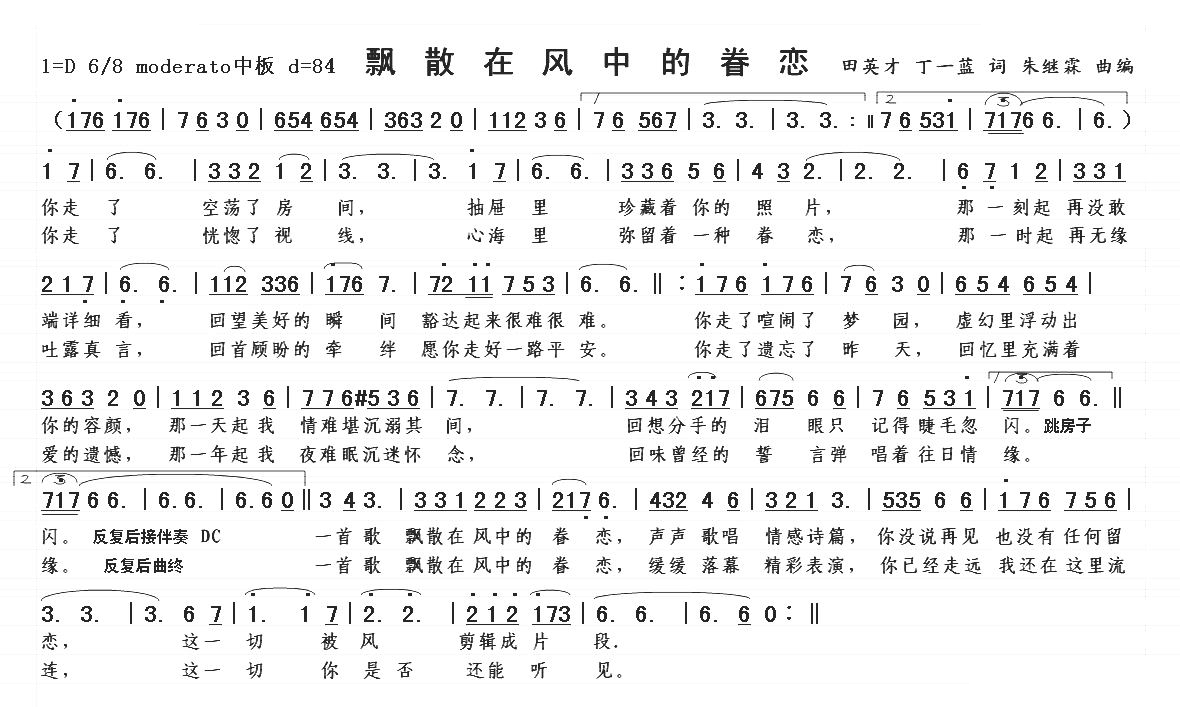 1=D 6/8 moderato中板 d=84 飘散在风中的眷恋 田英才 丁一蓝 词 朱继霖 曲编
(176 176 | 7 6 3 0 | 654 654 | 363 2 0 | 112 3 6 | 1 7 6 567 | 3. 3. | 3. 3. :‖ 2 7 6 531 | 717 6 6. | 6. )
1 7 | 6. 6. | 3 3 2 1 2 | 3. 3. | 3. 1 7 | 6. 6. | 3 3 6 5 6 | 4 3 2. | 2. 2. | 6 7 1 2 | 3 3 1
你走 了 空荡了 房 间, 抽屉 里 珍藏着 你的 照 片, 那 一刻起 再没敢
你走 了 恍惚了 视 线, 心海 里 弥留着 一种 眷 恋, 那 一时起 再无缘
2 1 7 | 6. 6. | 112 336 | 176 7. | 72 11 7 5 3 | 6. 6. ‖: 1 7 6 1 7 6 | 7 6 3 0 | 6 5 4 6 5 4 |
端详细 看, 回望美好的 瞬 间 豁达起来很难很 难。 你走了喧闹了 梦 园, 虚幻里浮动出
吐露真 言, 回首顾盼的 牵 绊 愿你走好一路平 安。 你走了遗忘了 昨 天, 回忆里充满着
3 6 3 2 0 | 1 1 2 3 6 | 7 7 6 #5 3 6 | 7. 7. | 7. 7. | 3 4 3 217 | 675 6 6 | 7 6 5 3 1 | 1 717 6 6. ‖
你的容颜, 那一天起 我 情难堪沉溺其 间, 回想分手的 泪 眼只 记得 睫毛忽 闪。跳房子
爱的遗憾, 那一年起 我 夜难眠沉迷怀 念, 回味曾经的 誓 言弹 唱着 往日情 缘。
2 717 6 6. | 6. 6. | 6. 6 0 ‖ 3 4 3. | 3 3 1 2 2 3 | 217 6. | 432 4 6 | 3 2 1 3. | 535 6 6 | 1 7 6 7 5 6 |
闪。 反复后接伴奏 DC 一首 歌 飘散在 风中的 眷 恋, 声声 歌唱 情感诗篇, 你没说再见 也没有 任何留
缘。 反复后曲终 一首 歌 飘散在 风中的 眷 恋, 缓缓 落幕 精彩表演, 你已经走远 我还在 这里流
3. 3. | 3. 6 7 | 1. 1 7 | 2. 2. | 2 1 2 173 | 6. 6. | 6. 6 0 :‖
恋, 这一 切 被 风 剪辑成 片 段.
连, 这一 切 你 是 否 还能 听 见。